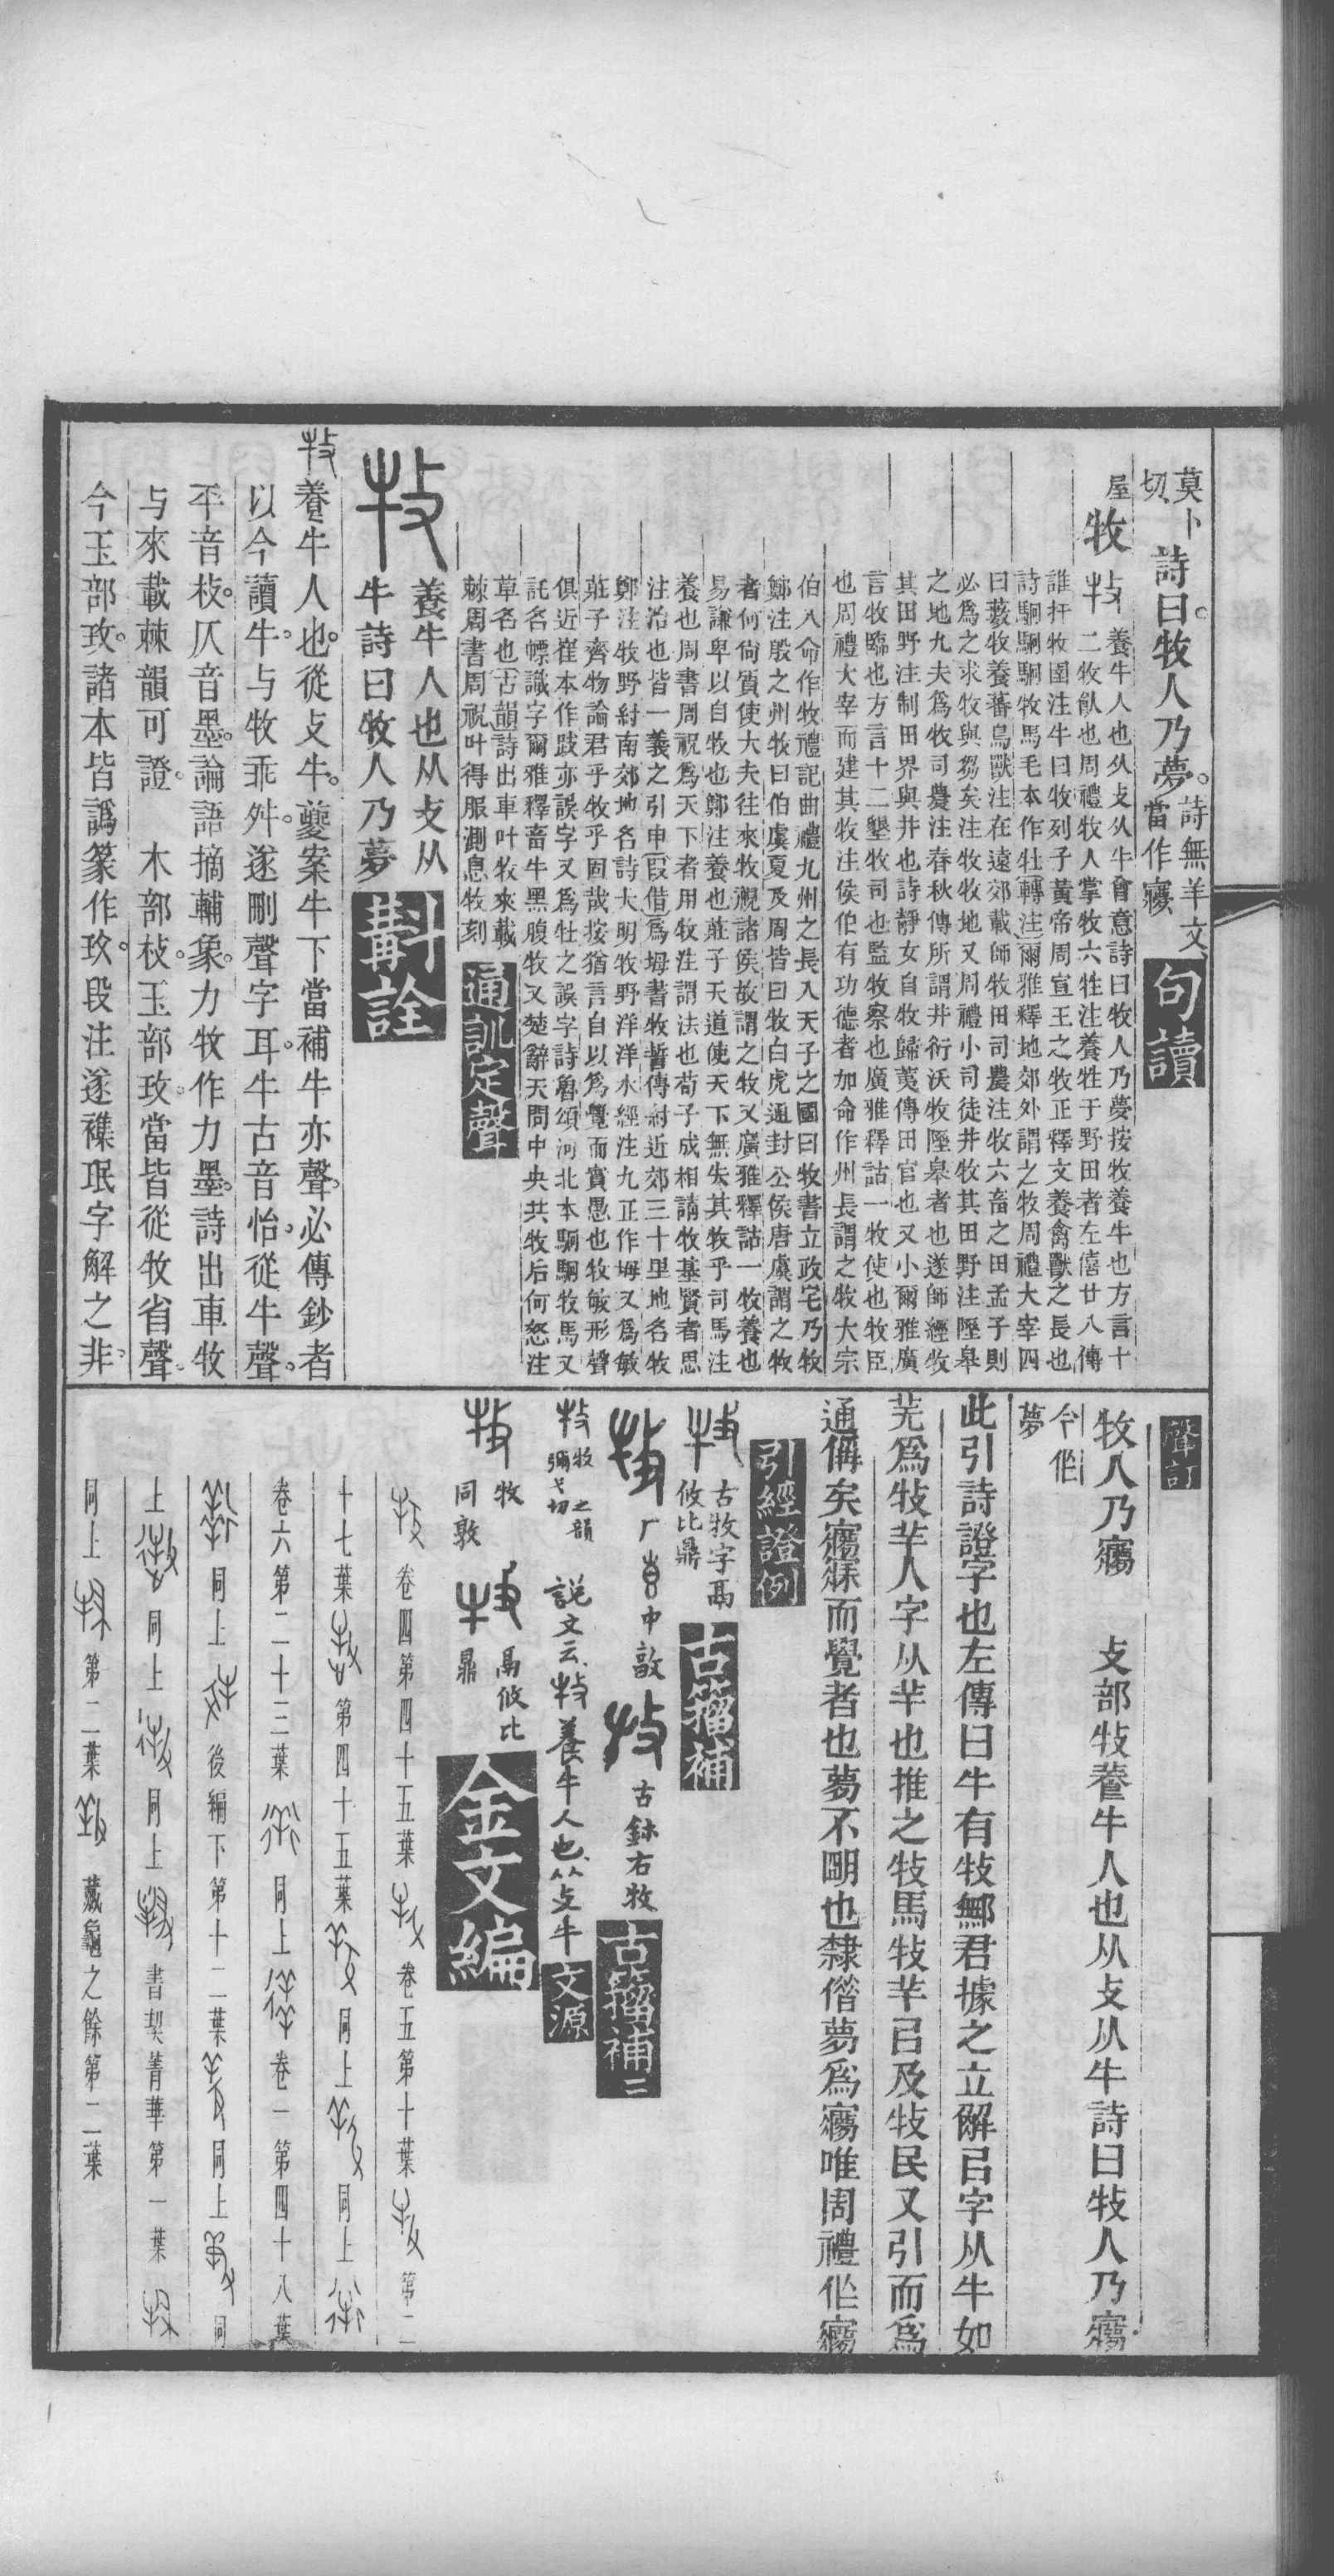 莫卜切
詩曰牧人乃夢
詩無羊文
當作㝱
句讀
屋
牧
養牛人也从攴从牛會意詩曰牧人乃夢按牧養牛也方言十
二牧飤也周禮牧人掌牧六牲注養牲于野田者左僖廿八傳
誰扞牧圉注牛曰牧列子黃帝周宣王之牧正釋文養禽獸之長也
詩駉駉駉牧馬毛本作牡轉注爾雅釋地郊外謂之牧周禮大宰四
曰藪牧養蕃鳥獸注在遠郊載師牧田司農注牧六畜之田孟子則
必爲之求牧與芻矣注牧牧地又周禮小司徒井牧其田野注隰皋
之地九夫爲牧司農注春秋傳所謂井衍沃牧隰皋者也遂師經牧
其田野注制田界與井也詩靜女自牧歸荑傳田官也又小爾雅廣
言牧臨也方言十二墾牧司也監牧察也廣雅釋詁一牧使也牧臣
也周禮大宰而建其牧注侯伯有功德者加命作州長謂之牧大宗
伯八命作牧禮記曲禮九州之長入天子之國曰牧書立政宅乃牧
鄭注殷之州牧曰伯虞夏及周皆曰牧白虎通封公侯唐虞謂之牧
者何尙質使大夫往來牧視諸侯故謂之牧又廣雅釋詁一牧養也
易謙卑以自牧也鄭注養也莊子天道使天下無失其牧乎司馬注
養也周書周祝爲天下者用牧注謂法也荀子成相請牧基賢者思
注治也皆一義之引申叚借爲坶書牧誓傳紂近郊三十里地名牧
鄭注牧野紂南郊地名詩大明牧野洋洋水經注九正作坶又爲敏
莊子齊物論君乎牧乎固哉按猶言自以爲覺而實愚也牧敏形聲
俱近崔本作跂亦誤字又爲牡之誤字詩魯頌河北本駉駉牧馬又
託名幖識字爾雅釋畜牛黑腹牧又楚辭天問中央共牧后何怒注
草名也古韻詩出車叶牧來載
棘周書周祝叶得服測息牧刻
通訓定聲
養牛人也从攴从
牛詩曰牧人乃夢
斠詮
養牛人也從攴牛夔案牛下當補牛亦聲必傳鈔者
以今讀牛与牧乖舛遂刪聲字耳牛古音怡從牛聲
平音枚仄音墨論語摘輔象力牧作力墨詩出車牧
与來載棘韻可證　木部枚玉部玫當皆從牧省聲
今玉部玫諸本皆譌篆作玫段注遂襍珉字解之非
聲訂
牧人乃㝱　攴部牧養牛人也从攴从牛詩曰牧人乃㝱
今作
夢
此引詩證字也左傳曰牛有牧鄦君據之立解㠯字从牛如
芜爲牧羊人字从羊也推之牧馬牧羊㠯及牧民又引而爲
通偁矣㝱寐而覺者也夢不朙也隸偕夢爲㝱唯周禮作㝱
引經證例
古牧字鬲
攸比鼎
古籀補
中敦
古鉥右牧
古籀補二
牧之韻
彌弋切
說文云牧養牛人也从攴牛
文源
牧
同敦
鬲攸比
鼎
金文編
卷四第四十五葉　卷五第十葉　第二
十七葉　第四十五葉　同上　同上
卷六第二十三葉　同上　卷一第四十八葉
同上　後編下第十二葉　同上　同
上　同上　同上　書契菁華第一葉
同上　第二葉　藏龜之餘第二葉